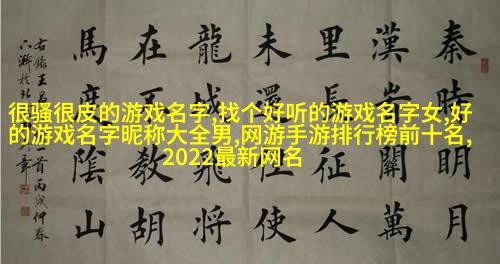 很骚很皮的游戏名字,找个好听的游戏名字女,好
的游戏名字昵称大全男,网游手游排行榜前十名,
2022最新网名
秦時明月
漢關萬
里長征人
未還使
龍城飛將
在不教胡
馬度陰山
右錄王
首丙戌仲春